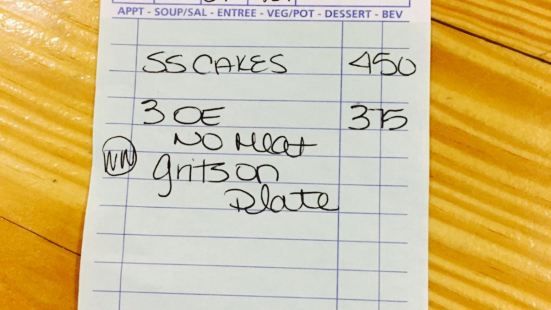 APPT - SOUP/SAL - ENTREE - VEG/POT - DESSERT - BEV
SS CAKES 450
3 OE 375
NO Meat
WW grits on
Plate